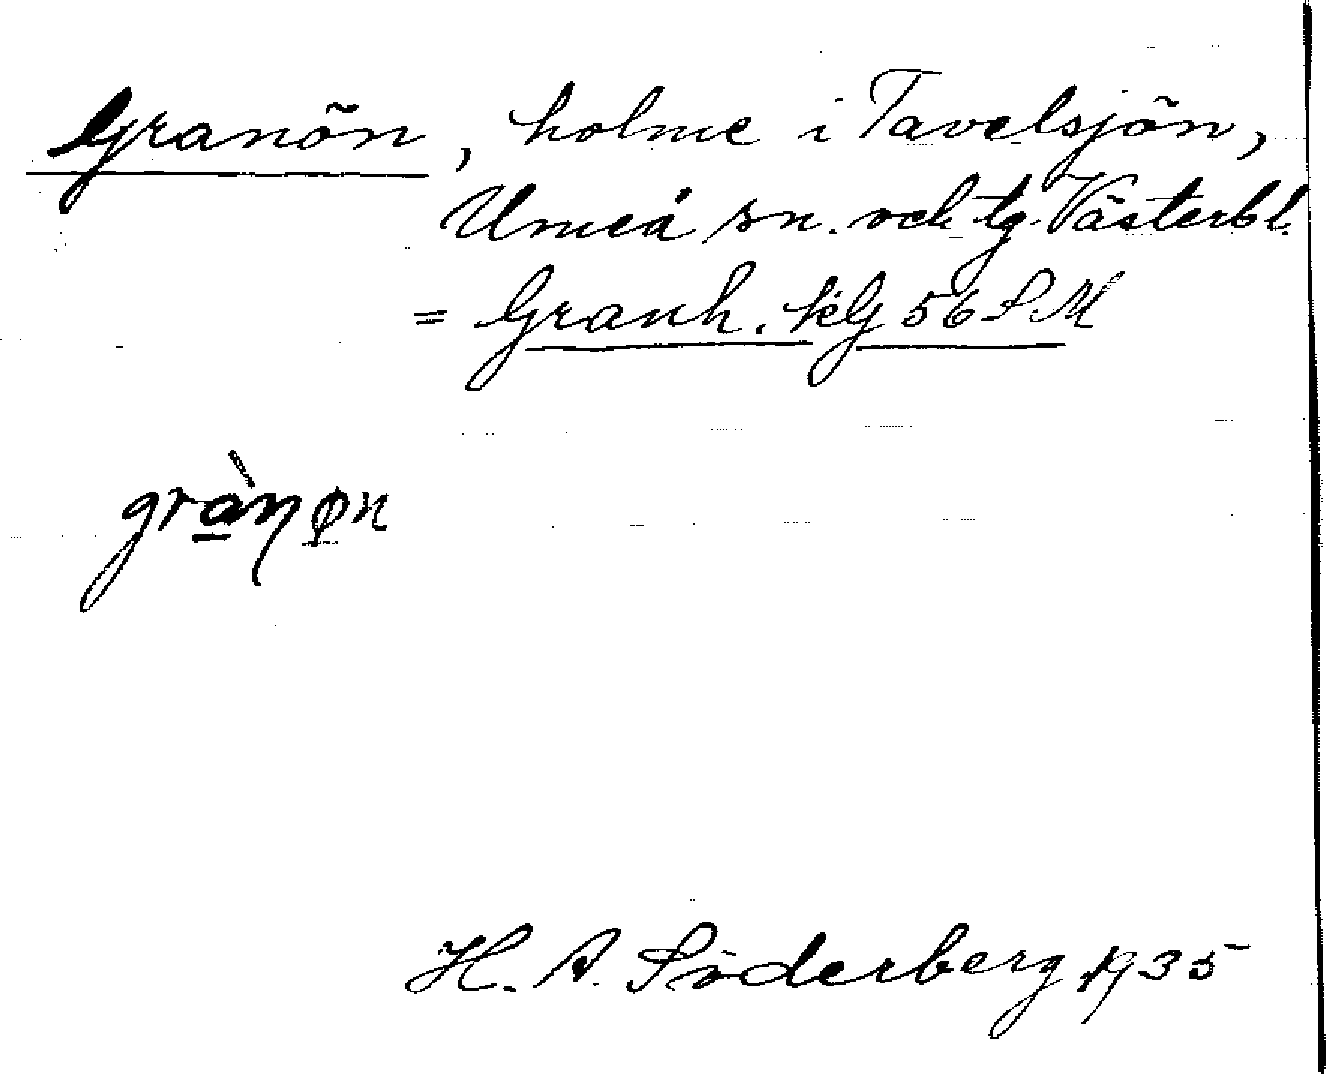 Granön, holme i Tavelsjön,
Umeå sn. och tg. Västerbl.
= Granh. kG 56 S M
grànøn
H. A. Söderberg 1935